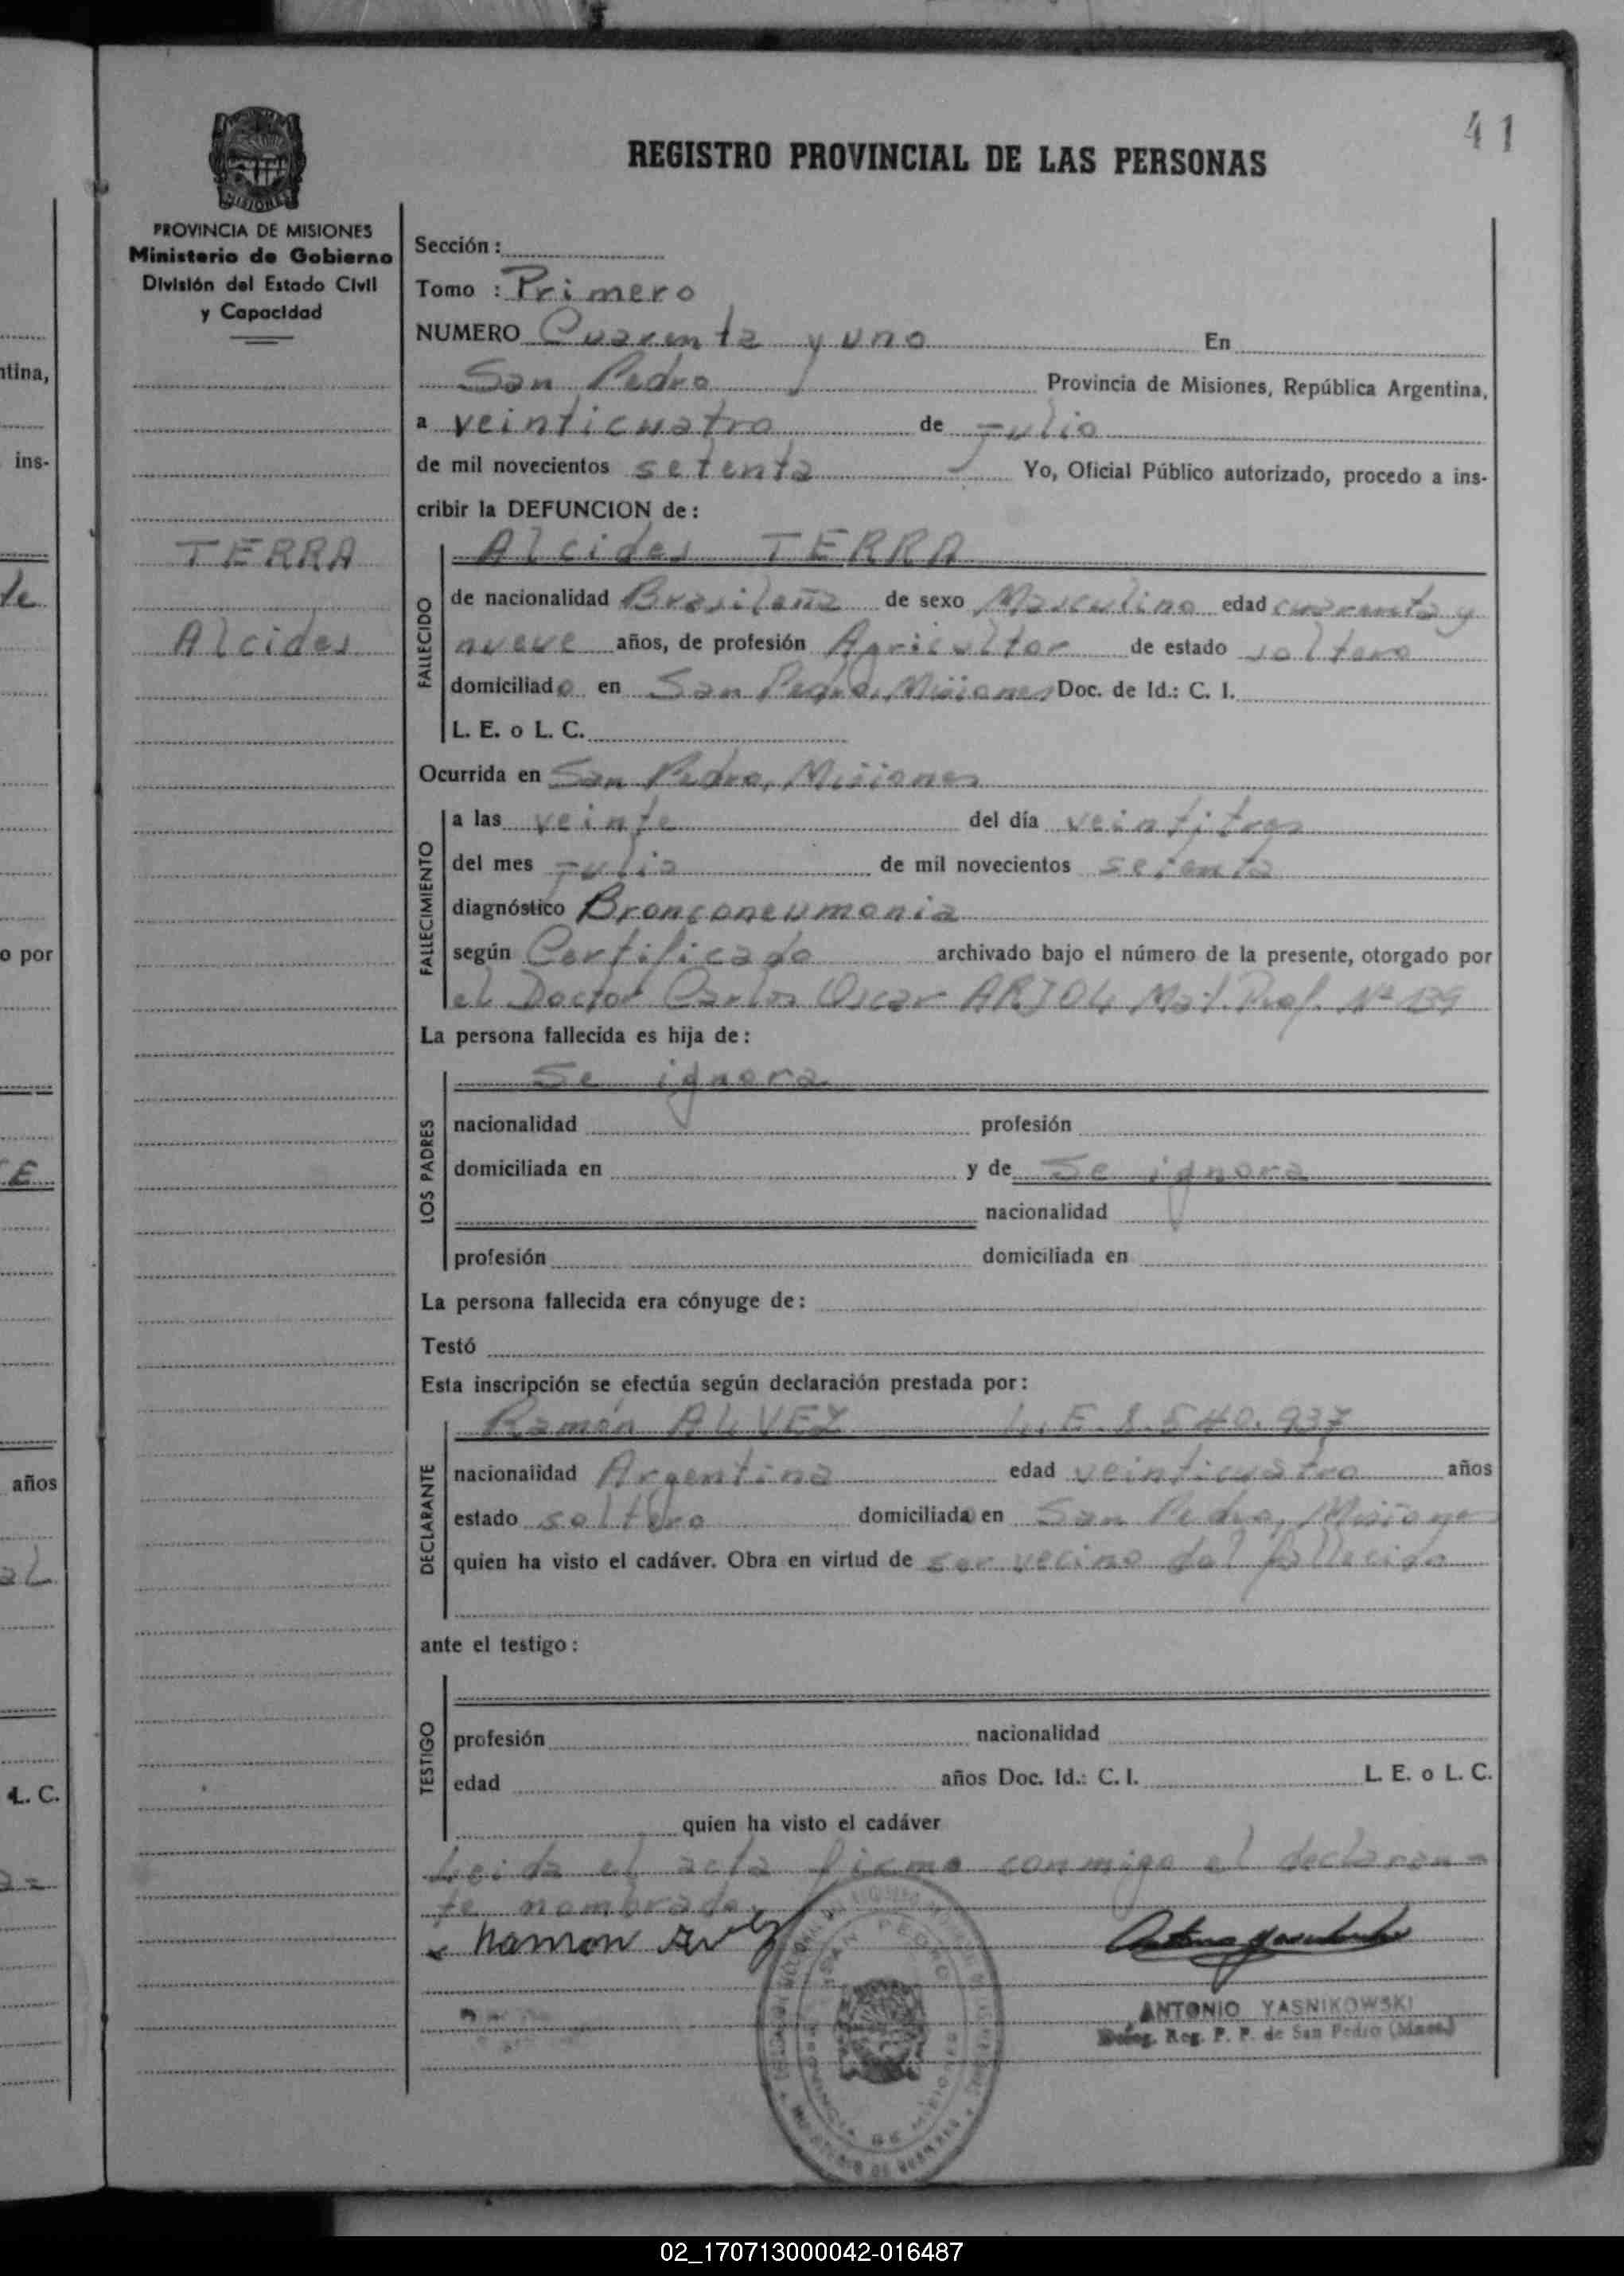 41
REGISTRO PROVINCIAL DE LAS PERSONAS
MISIONES
PROVINCIA DE MISIONES
Ministerio de Gobierno
División del Estado Civil
y Capacidad
TERRA
Alcides
Sección :
Tomo : Primero
NUMERO Cuarenta y uno En
San Pedro Provincia de Misiones, República Argentina,
a veinticuatro de Julio
de mil novecientos setenta Yo, Oficial Público autorizado, procedo a ins-
cribir la DEFUNCION de :
FALLECIDO
Alcides TERRA
de nacionalidad Brasileña de sexo Masculino edad cuarenta y
nueve años, de profesión Agricultor de estado soltero
domiciliado en San Pedro, Misiones Doc. de Id.: C. I.
L. E. o L. C.
Ocurrida en San Pedro, Misiones
FALLECIMIENTO
a las veinte del día veintitres
del mes Julio de mil novecientos setenta
diagnóstico Bronconeumonia
según Certificado archivado bajo el número de la presente, otorgado por
el Doctor Carlos Oscar Mat. Prof. Nº 139
La persona fallecida es hija de :
LOS PADRES
Se ignora
nacionalidad profesión
domiciliada en y de Se ignora
nacionalidad
profesión domiciliada en
La persona fallecida era cónyuge de :
Testó
Esta inscripción se efectúa según declaración prestada por :
DECLARANTE
Ramón ALVEZ L.E. 8.540.937
nacionalidad Argentina edad veinticuatro años
estado soltero domiciliada en San Pedro, Misiones
quien ha visto el cadáver. Obra en virtud de ser vecino del fallecido
ante el testigo :
TESTIGO
profesión nacionalidad
edad años Doc. Id.: C. I. L. E. o L. C.
quien ha visto el cadáver
Leida el acta firma conmigo el declaran-
te nombrado.
Ramon Alvez
SAN PEDRO
PROVINCIA DE MISIONES
MINISTERIO DE GOBIERNO
ANTONIO YASNIKOWSKI
Deleg. Reg. P. P. de San Pedro (Mnes.)
ntina,
ins-
de
o por
E
años
al
L. C.
02_170713000042-016487